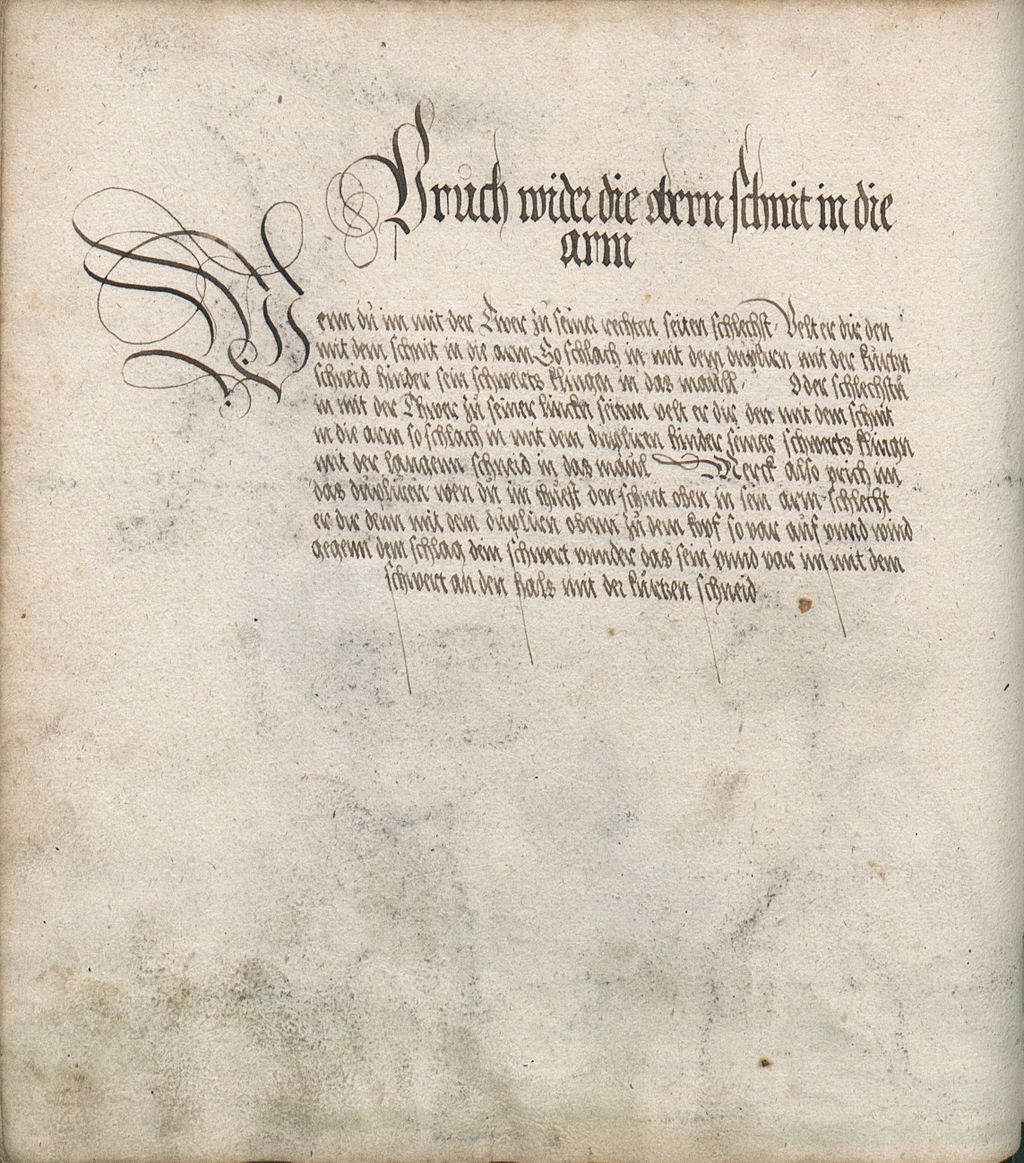 Bruch wider die obern schnit in die
arm
Wenn du im mit der Twer zu seiner rechten seiten schlechst Velt er dir den
mit dem schnit in die arm So schlach in mit dem duplirn mit der kurtzn
schneid hinder sein schwerts klingen in das maull Oder schlechstu
in mit der Twer zu seiner lincken seitenn velt er dir den mit dem schnit
in die arm so schlach in mit dem dupliren hinder seiner schwerts klingn
mit der langenn schneid in das maul Merck also prich im
das dupliren wen du im thuest den schnit oben in sein arm schlecht
er dir denn mit dem duplirn obenn zu dem kopf so var auf vnnd wind
gegenn dem schlag dein schwert vnnder das sein vnnd var im mit dem
schwert an den hals mit der kurtzen schneid